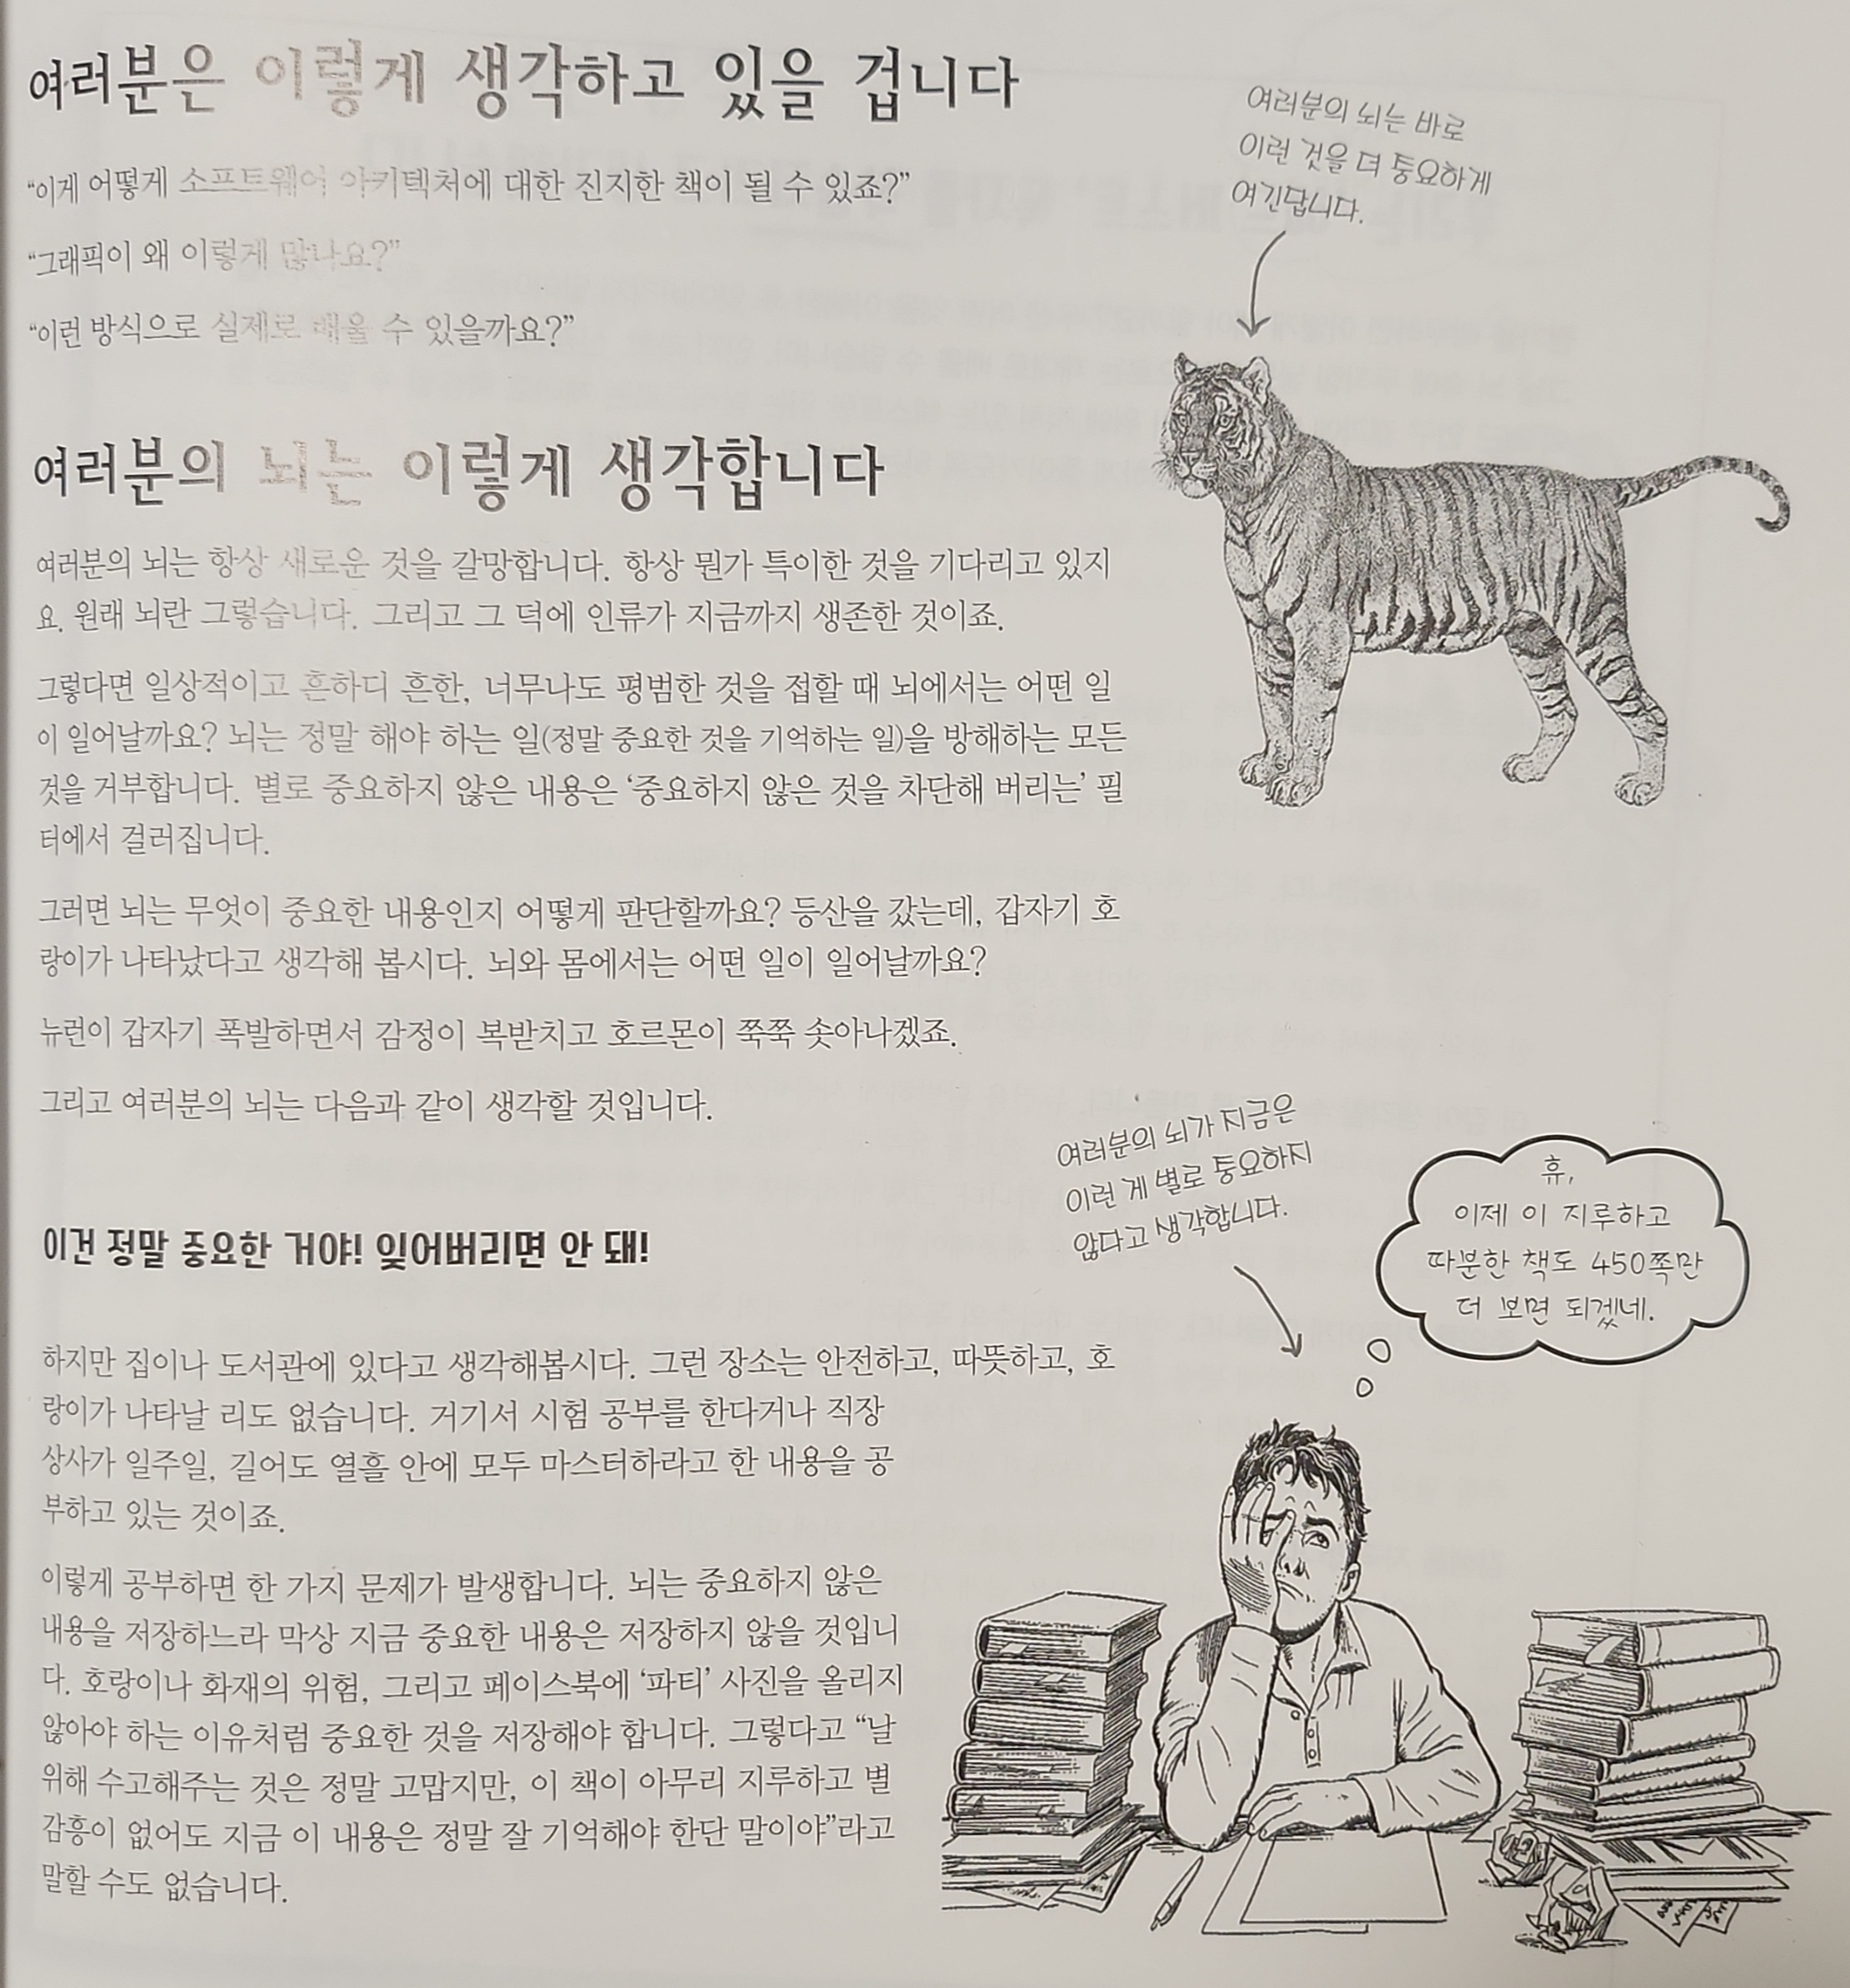 여러분은 이렇게 생각하고 있을 겁니다
“이게 어떻게 소프트웨어 아키텍처에 대한 진지한 책이 될 수 있죠?”
“그래픽이 왜 이렇게 많나요?”
“이런 방식으로 실제로 배울 수 있을까요?”
여러분의 뇌는 바로
이런 것을 더 중요하게
여긴답니다.
여러분의 뇌는 이렇게 생각합니다
여러분의 뇌는 항상 새로운 것을 갈망합니다. 항상 뭔가 특이한 것을 기다리고 있지
요. 원래 뇌란 그렇습니다. 그리고 그 덕에 인류가 지금까지 생존한 것이죠.
그렇다면 일상적이고 흔하디 흔한, 너무나도 평범한 것을 접할 때 뇌에서는 어떤 일
이 일어날까요? 뇌는 정말 해야 하는 일(정말 중요한 것을 기억하는 일)을 방해하는 모든
것을 거부합니다. 별로 중요하지 않은 내용은 ‘중요하지 않은 것을 차단해 버리는’ 필
터에서 걸러집니다.
그러면 뇌는 무엇이 중요한 내용인지 어떻게 판단할까요? 등산을 갔는데, 갑자기 호
랑이가 나타났다고 생각해 봅시다. 뇌와 몸에서는 어떤 일이 일어날까요?
뉴런이 갑자기 폭발하면서 감정이 복받치고 호르몬이 쭉쭉 솟아나겠죠.
그리고 여러분의 뇌는 다음과 같이 생각할 것입니다.
이건 정말 중요한 거야! 잊어버리면 안 돼!
여러분의 뇌가 지금은
이런 게 별로 중요하지
않다고 생각합니다.
휴,
이제 이 지루하고
따분한 책도 450쪽만
더 보면 되겠네.
하지만 집이나 도서관에 있다고 생각해봅시다. 그런 장소는 안전하고, 따뜻하고, 호
랑이가 나타날 리도 없습니다. 거기서 시험 공부를 한다거나 직장
상사가 일주일, 길어도 열흘 안에 모두 마스터하라고 한 내용을 공
부하고 있는 것이죠.
이렇게 공부하면 한 가지 문제가 발생합니다. 뇌는 중요하지 않은
내용을 저장하느라 막상 지금 중요한 내용은 저장하지 않을 것입니
다. 호랑이나 화재의 위험, 그리고 페이스북에 ‘파티’ 사진을 올리지
않아야 하는 이유처럼 중요한 것을 저장해야 합니다. 그렇다고 “날
위해 수고해주는 것은 정말 고맙지만, 이 책이 아무리 지루하고 별
감흥이 없어도 지금 이 내용은 정말 잘 기억해야 한단 말이야”라고
말할 수도 없습니다.